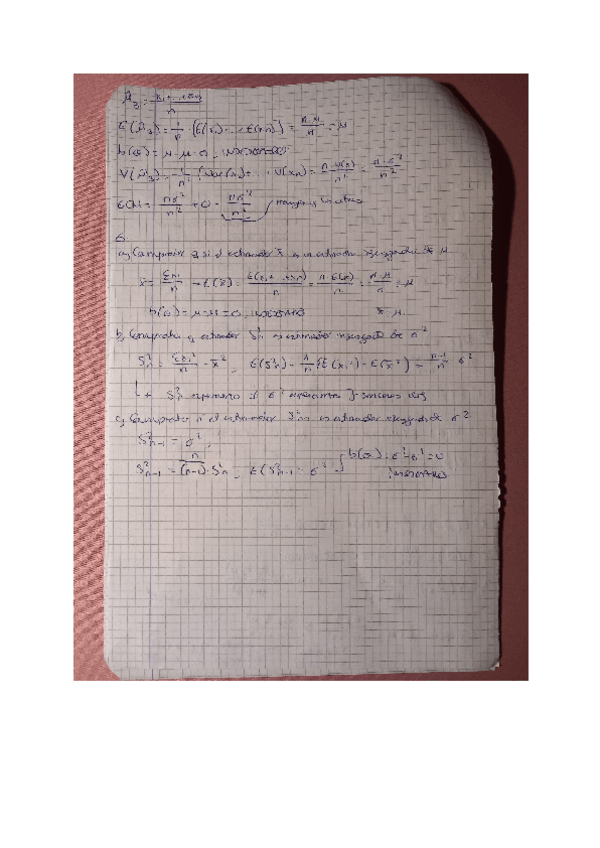 μ̂₃ = x₁+...+xₙ / n
E(μ̂₃) = 1/n · [E(x₁)+...+E(xn)] = n·μ / n = μ
b(θ) = μ-μ = 0, insesgado
V(μ̂₃) = 1/n² (Var(x₁)+...+V(xn) = n·V(x) / n² = n·σ² / n²
ECM = nσ² / n² + 0 = nσ² / n²
6.
a) Comprobar si el estimador x̄ es un estimador insesgado de μ
x̄ = Σxi / n → E(x̄) = E(x₁+...+xn) / n = n·E(x) / n = n·μ / n = μ
b(θ) = μ-μ = 0, insesgado x̄ μ.
b) Comprobar estimador S²n es estimador insesgado de σ²
S²n = Σxi² / n - x̄², E(S²n) = E(xi²) - E(x̄²) = n-1 / n σ²
S²n σ²
c) Comprobar si el estimador S²n-1 es estimador insesgado de σ²
S²n-1 = σ²,
S²n-1 = n / (n-1) · S²n, E(S²n-1 = σ² b(θ) = σ²-σ² = 0
insesgado